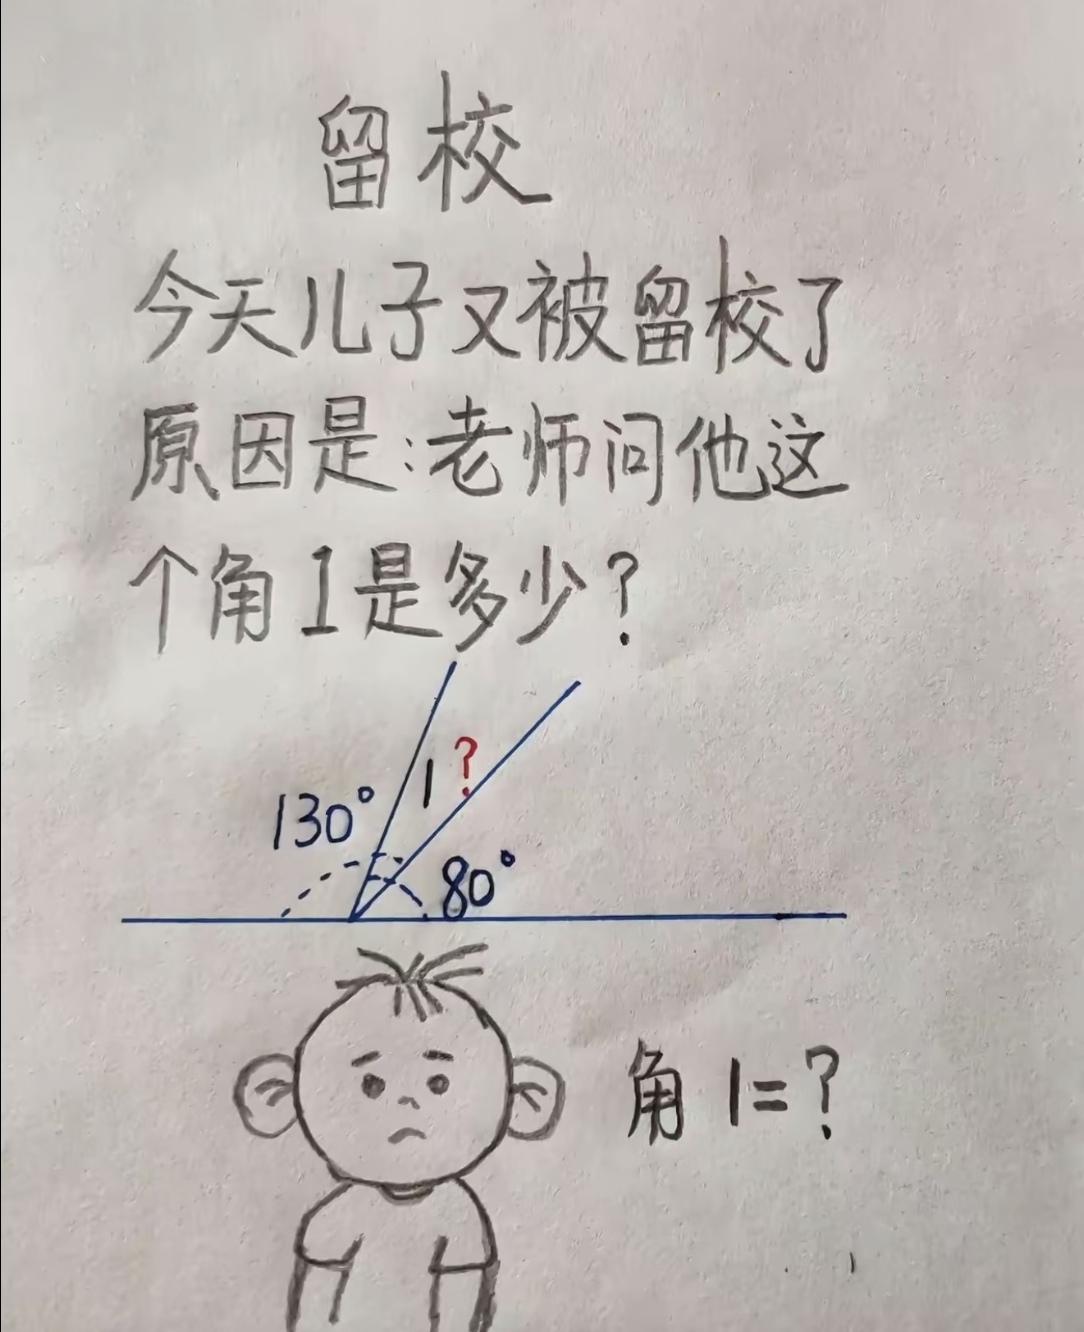 留校
今天儿子又被留校了
原因是:老师问他这
个角1是多少?
1?
130°
80°
角1=?